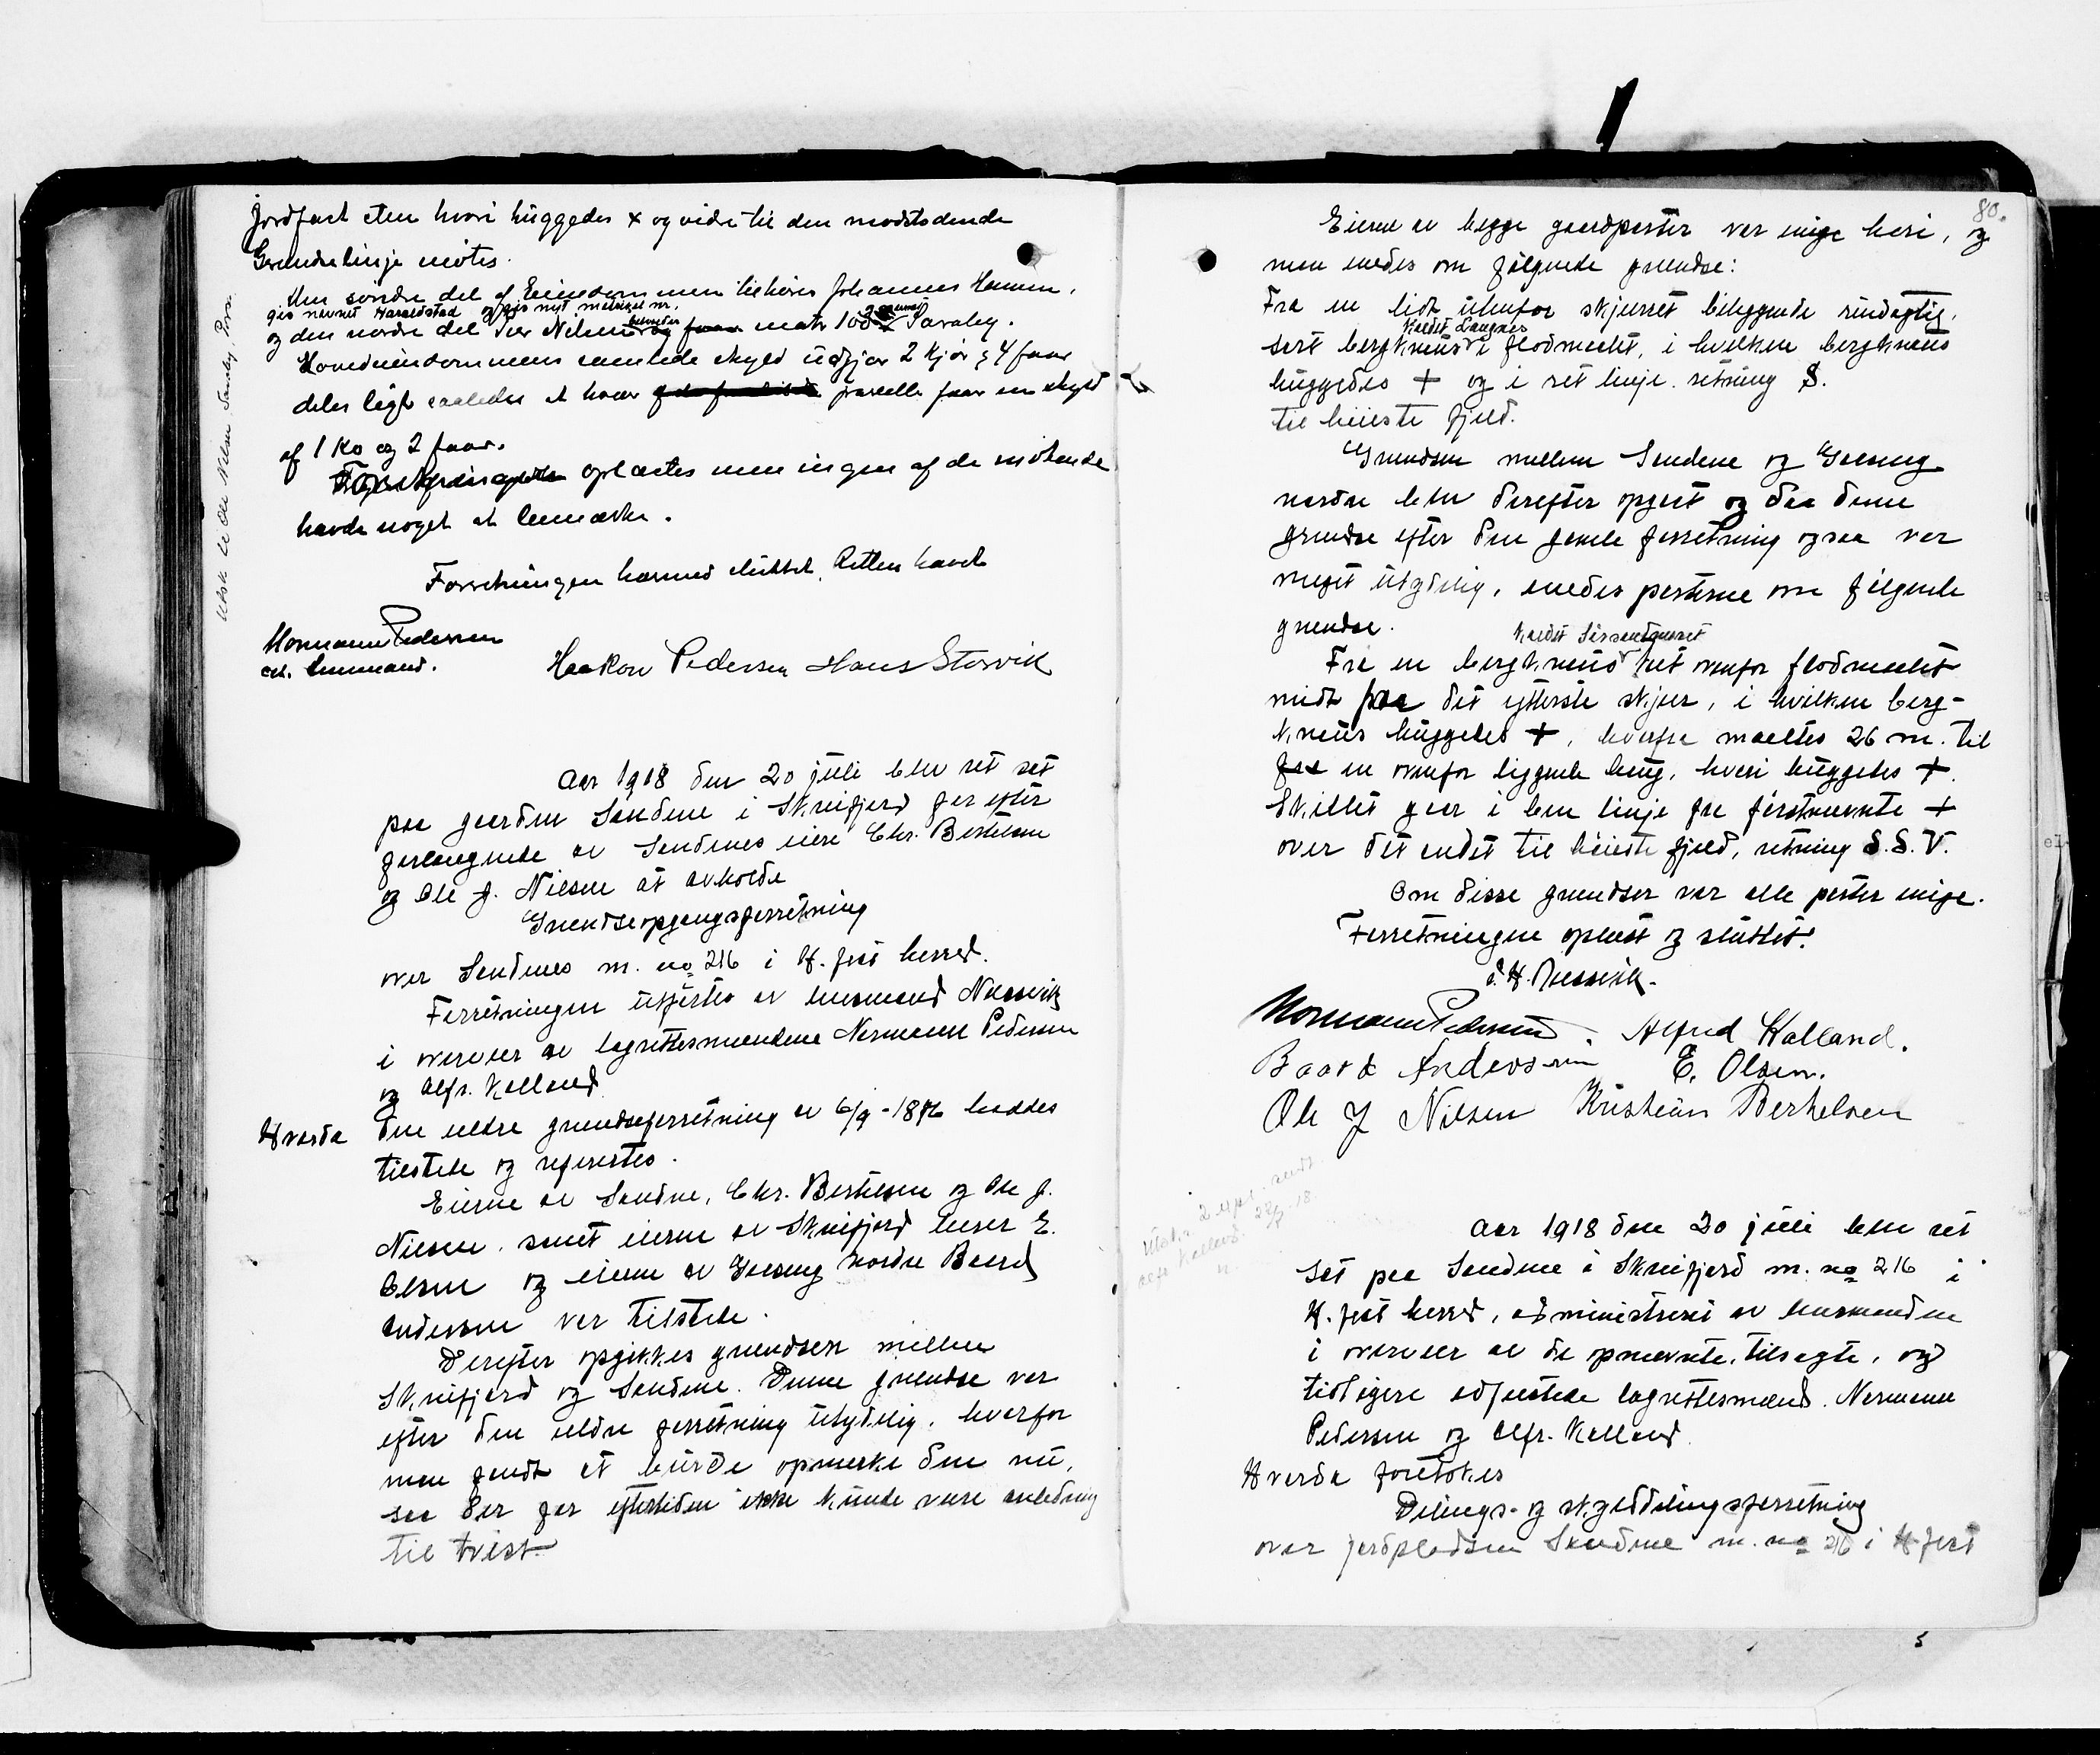 jordfast sten hvori huggedes x og vidre til den modstodende
Grændselinje møtes.
Den søndre del af Eiendommen tilhører Johannes Hansen,
gis navnet Haraldstad og gis nyt matrikel nr.
og den nordre del Per Nilsen beholder matr 108 Saraby.
Hovedeiendommens samlede skyld udgjør 2 Kjør og 4 faar
deles ligt saaledes at hver parselle faar en skyld
af 1 Ko og 2 faar.
Forretningen oplæstes men ingen af de møtende
havde noget at bemærke.
Forretningen hermed sluttet. Retten hævet
Normann Pedersen
cst. lensmand.
Haakon Pedersen Hans Storvik
Aar 1918 den 20 juli blev ret sat
paa gaarden Sandene i Skreifjord for efter
forlangende av Sandenes eiere Chr. Bertelsen
og Ole J. Nilsen at avholde
Grændseopgangsforretning
over Sandenes m. no 216 i H. fest herred.
Forretningen utførtes av lensmand Næssvik
i overvær av lagrettesmændene Normann Pedersen
og Alfr. Kalland.
Hvorda den ældre grændseforretning av 6/9-1876 haddes
tilstede og refererte­s.
Eierne av Sandne, Chr. Bertelsen og Ole J.
Nilsen, samt eierne av Skreifjord læser E.
Olsen og eieren av Gaasnes nordre Baard
Andersen var tilstede.
Derefter opgikkes grændsen mellem
Skreifjord og Sandene. Denne grændse var
efter den ældre forretning utydelig, hvorfor
man fandt at burde opmerke den nu,
saa der for eftertiden ikke kunde være anledning
til tvist.
80.
Eierne av begge gaardparter var enige heri, og
man enedes om følgende grændse:
Fra en lidt utenfor skjærret beliggende rundagtig,
kaldet Langnes
sort bergknaus i flodmaalet, i hvilken bergknaus
huggedes + og i ret linje. retning S.
til høieste fjeld.
Grændsen mellem Sandene og Gaasnes
nordre blev derefter opgaat og da denne
grændse efter den gamle forretning ogsaa var
meget utydelig, enedes parterne om følgende
grændse.
Fra en bergknaus ret ovenfor flodmaalet
midt paa det ytterste skjær, i hvilken berg-
knaus huggedes +, hvorfra maaltes 26 m. til
en ovenfor liggende haug, hvori huggedes +.
Skillet gaar i ben linje fra førstnævnte +
over det andet til høieste fjeld, retning S.S.V.
Om disse grændser var alle parter enige.
Forretningen oplæst og sluttet.
J. H. Næssvik.
Normann Pedersen. Alfred Kalland.
Baard Anderssen E. Olsen.
Ole J Nilsen Kristian Berthelsen
Aar 1918 den 20 juli blev ret
sat paa Sandene i Skreifjord m. no 216 i
H. fest herred, administrert av lensmanden
i overvær av de opnævnte, tilsagte, og
tidligere edfæstede lagrettesmænd. Normann
Pedersen og Alfr. Kalland.
Hvorda foretokes
Delings- og skylddelingsforretning
over jordpladsen Sandene m. no 216 i H. fest